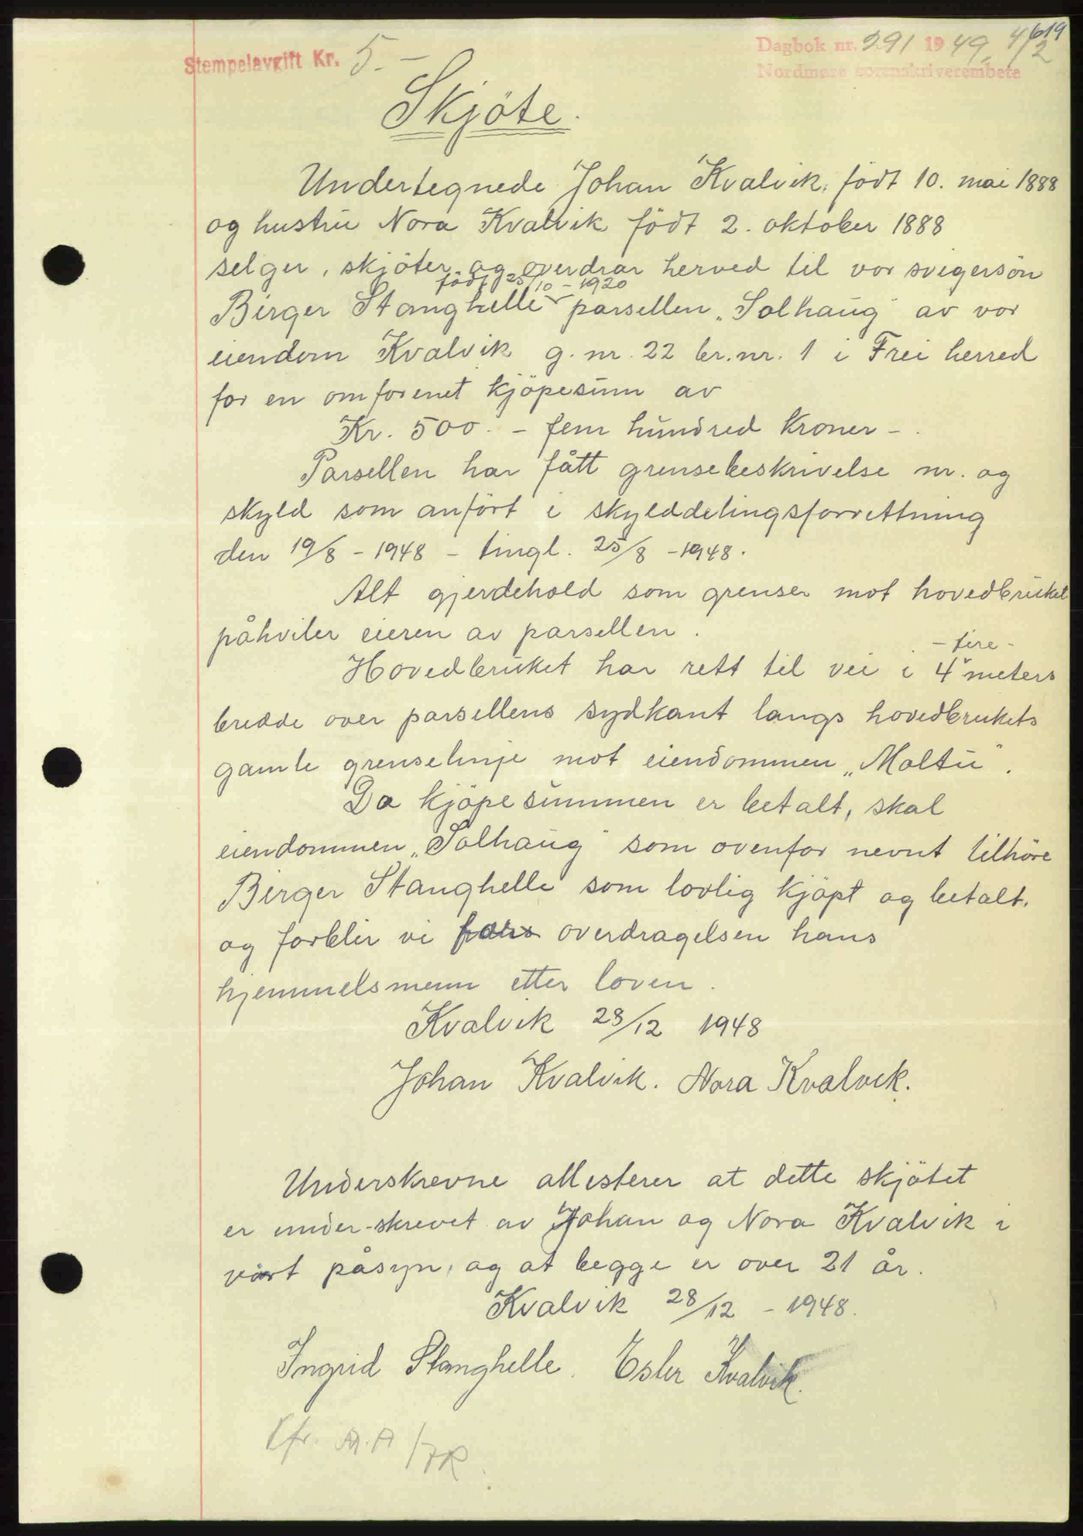 619
Stempelavgift Kr. 5.-
Dagbok nr. 391 1949. 4/2
Nordmøre sorenskriverembete
Skjöte.
Undertegnede Johan Kvalvik, födt 10. mai 1888
og hustru Nora Kvalvik födt 2. oktober 1888
selger, skjöter og overdrar herved til vor svigersön
födt 25/10 - 1920
Birger Stanghelle parsellen „Solhaug" av vor
eiendom Kvalvik g. nr. 22 br. nr. 1 i Frei herred
for en omforenet kjöpesum av
Kr. 500. - fem hundred kroner -.
Parsellen har fått grensebeskrivelse nr. og
skyld som anfört i skylddelingsforrettning
den 19/8 - 1948 - tingl. 25/8 - 1948.
Alt gjerdehold som grenser mot hovedbruket
påhviler eieren av parsellen.
- fire -
Hovedbruket har rett til vei i 4 meters
bredde over parsellens sydkant langs hovedbrukets
gamle grenselinje mot eiendommen „Moltu".
Da kjöpesummen er betalt, skal
eiendommen „Solhaug" som ovenfor nevnt tilhöre
Birger Stanghelle som lovlig kjöpt og betalt.
og forblir vi overdragelsen hans
hjemmelsmenn etter loven.
Kvalvik 28/12 1948
Johan Kvalvik. Nora Kvalvik.
Underskrevne attesterer at dette skjötet
er under-skrevet av Johan og Nora Kvalvik i
vårt påsyn, og at begge er over 21 år.
Kvalvik 28/12 - 1948.
Ingrid Stanghelle. Esler Kvalvik.